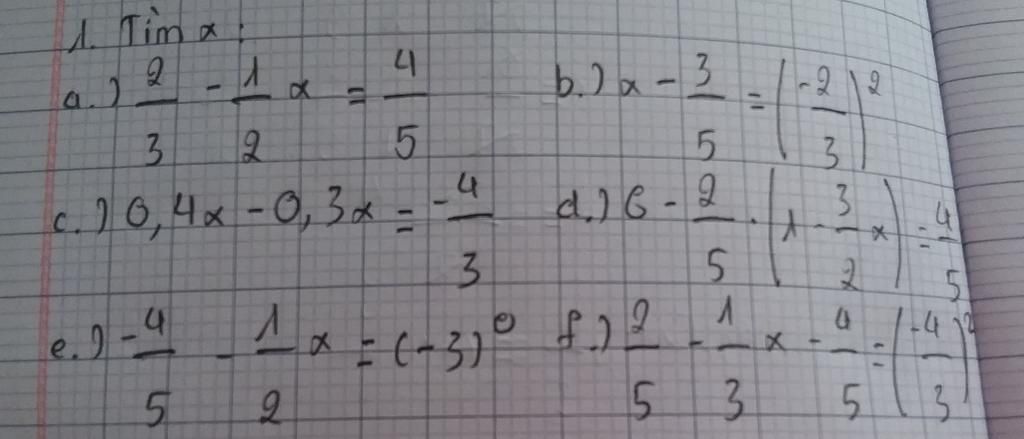 1. Tìm x:
a.) 2/3 - 1/2 x = 4/5 b.) x - 3/5 = (-2/3)²
c.) 0,4x - 0,3x = -4/3 d.) 6 - 2/5 . (1 - 3/2 x) = 4/5
e.) -4/5 - 1/2 x = (-3)⁰ f.) 2/5 - 1/3 x - 4/5 = (-4/3)²